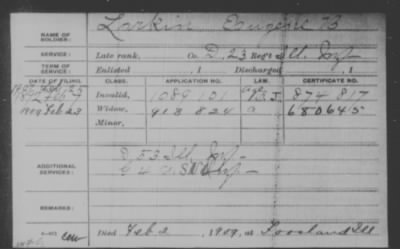 NAME OF SOLDIER: Larkin Eugene B
SERVICE: Late rank, Co. D, 23 Reg't Ill. Inf.
TERM OF SERVICE: Enlisted , 1 Discharged , 1
DATE OF FILING. CLASS. APPLICATION NO. LAW. CERTIFICATE NO.
Invalid, 1089 101 874 817
1909 Feb 23 Widow, 913 824 680645
Minor,
ADDITIONAL SERVICES: D 53 Ill Inf.
REMARKS:
Died Feb 2, 1909, at Foosland Ill